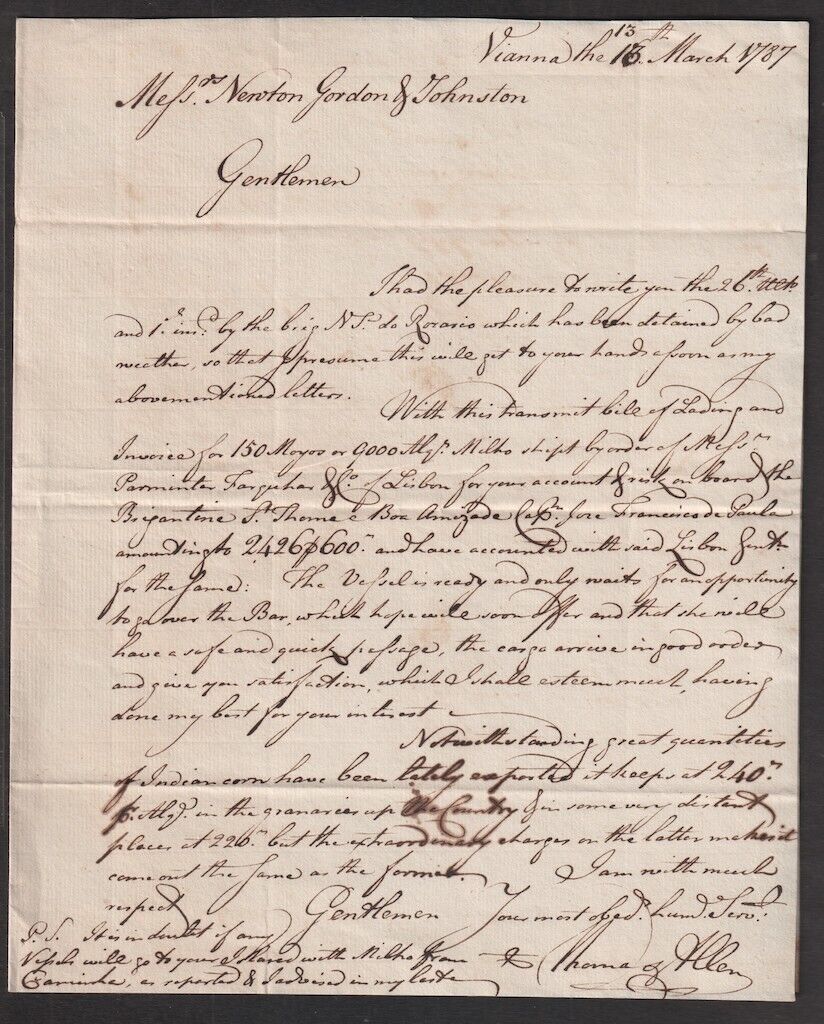 13th
Vianna the 13. March 1787
Messrs. Newton Gordon & Johnston
Gentlemen
I had the pleasure to write you the 26th. Ulto.
and 1o. inst. by the brig N Sa. do Rozario which has been detained by bad
weather, so that I presume this will get to your hands assoon as my
abovementioned letters.
With this transmit bill of Lading and
Invoice for 150 Moyos or 9000 Alqs. Milho shipt by order of Messrs.
Parminter Farquhar & Co. of Lisbon for your account & risk on board the
Brigantine St. Thome e Boa Amizade Capn. Joze Francisco de Paula
amounting to 2426$600rs. and have accounted with said Lisbon Gentn.
for the same: The Vessel is ready and only waits for an opportunity
to go over the Bar, which hope will soon offer and that she will
have a safe and quick passage, the cargo arrive in good order
and give you satisfaction, which I shall esteem much, having
done my best for your interest
Notwithstanding great quantities
of Indian corn have been lately exported it keeps at 240rs.
p. Alqr. in the granaries up the Country & in some very distant
places at 220rs. but the extraordinary charges on the latter makes it
come out the same as the former.
I am with much
respect
Gentlemen
Your most obedt. humb. Servt.
Thomas Allen
P.S. It is in doubt if any
Vessels will go to your Island with Milho from
Caminha, as reported & I advised in my last